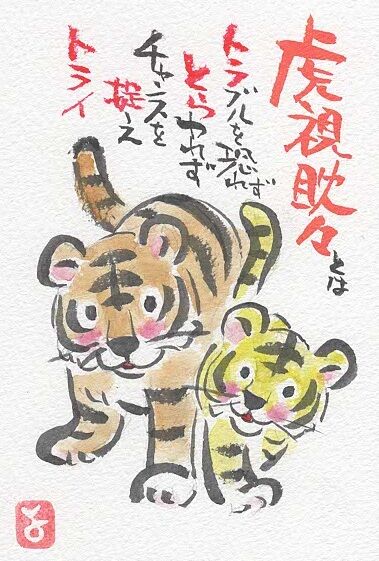 虎視眈々とは
トラブルを恐れず
とらわれず
チャンスを
捉え
トライ